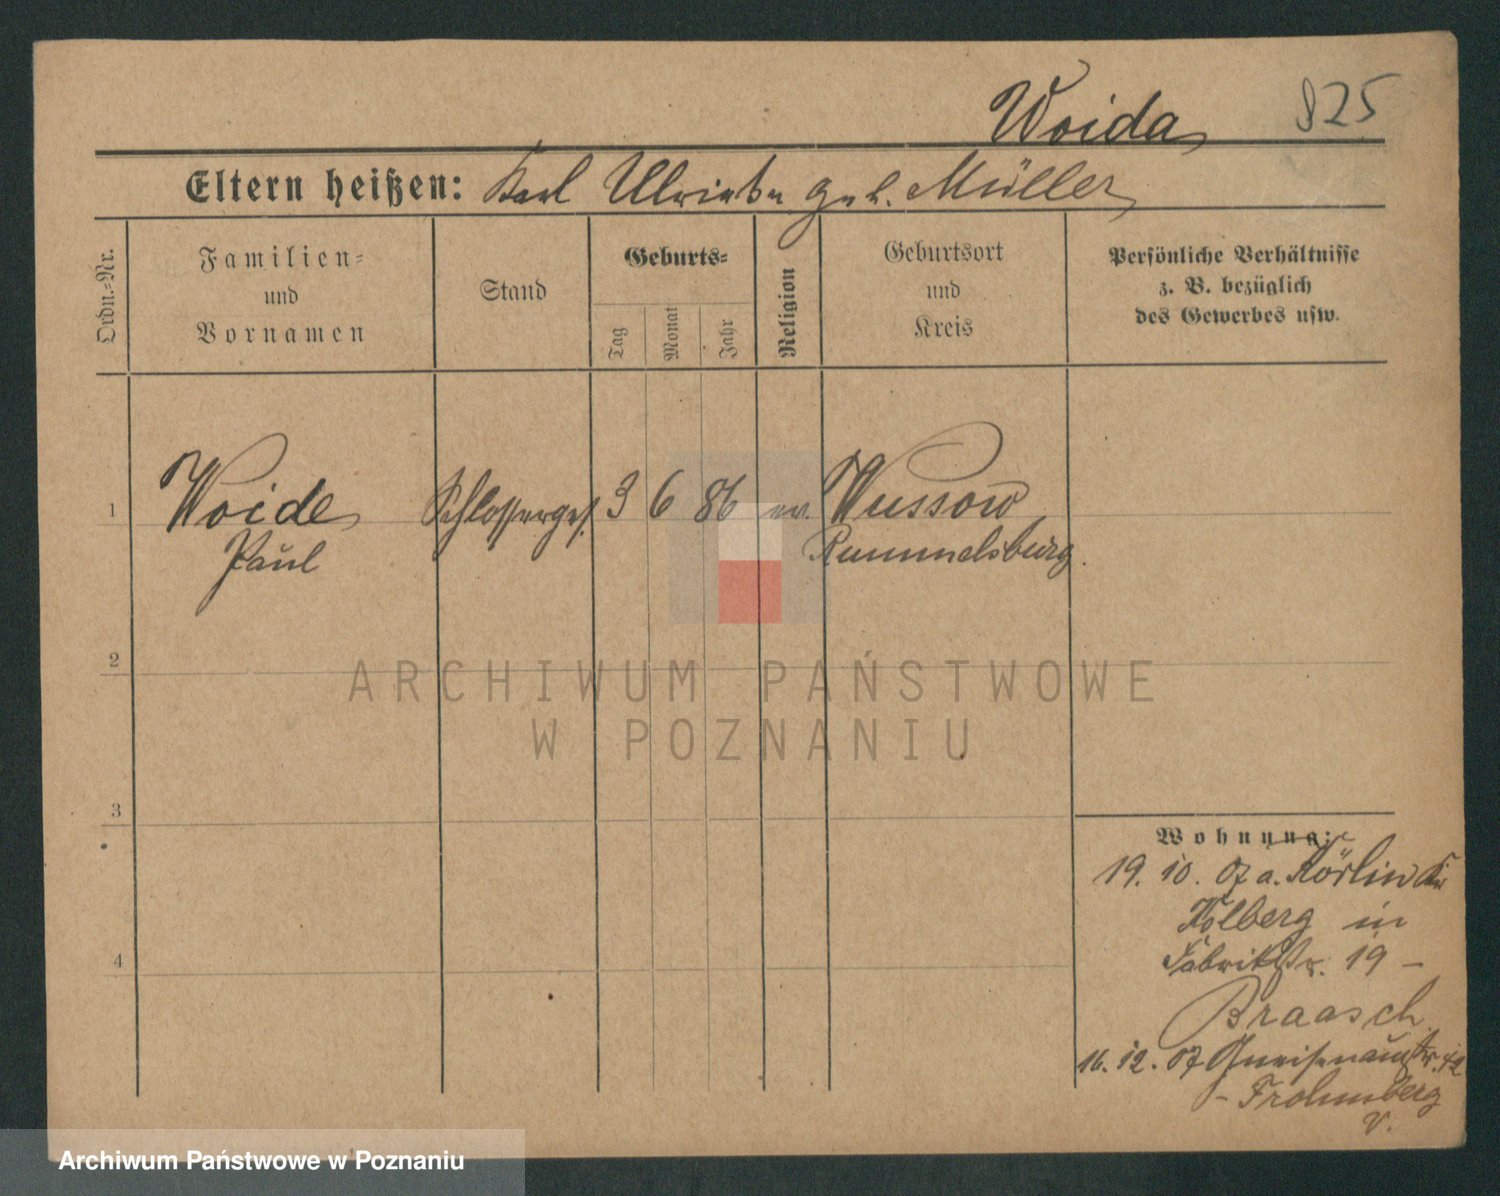 Woida 825
Eltern heißen: Karl Ulrieke geb. Müller
Ordn.-Nr.
Familien-
und
Vornamen
Stand
Geburts-
Tag
Monat
Jahr
Religion
Geburtsort
und
Kreis
Persönliche Verhältnisse
z. B. bezüglich
des Gewerbes usw.
1 Woide Schlosserges. 3 6 86 ev. Wussow
Paul Rummelsburg.
2
ARCHIWUM PAŃSTWOWE
W POZNANIU
3
Wohnung:
19. 10. 07 a. Körlin Kr
Kolberg in
4 Fabrikstr. 19 –
Braasch
16. 12. 07 Gneisenaustr. 42
- Frohmberg
V.
Archiwum Państwowe w Poznaniu